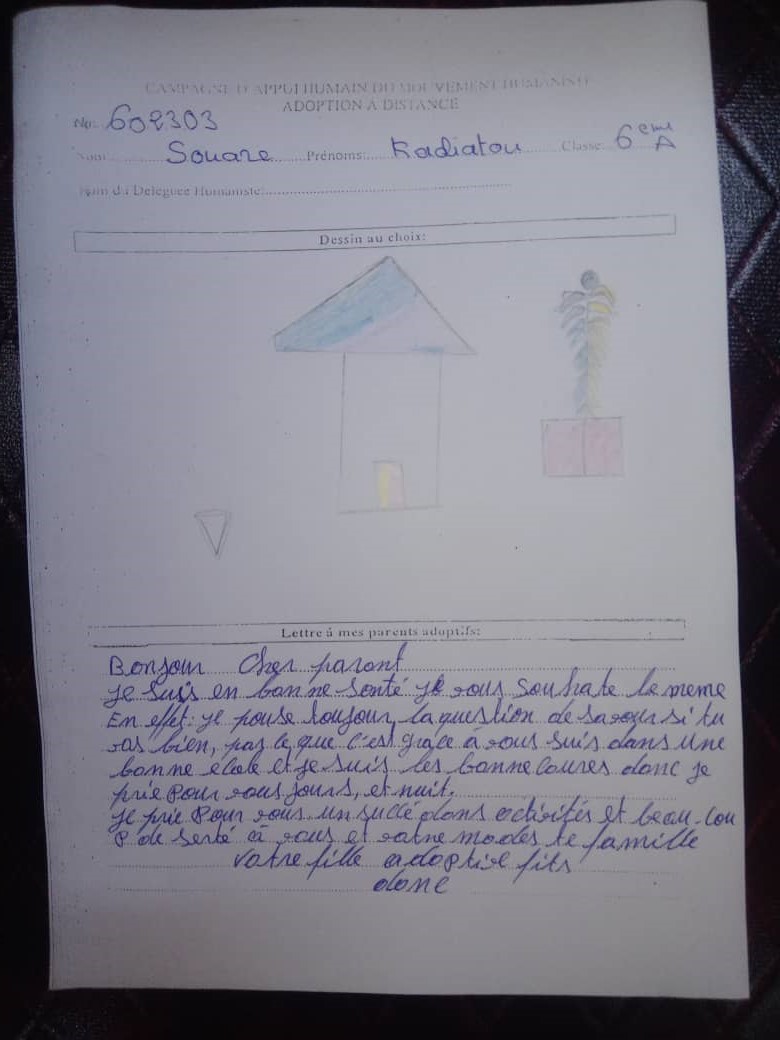 CAMPAGNE D'APPUI HUMAIN DU MOUVEMENT HUMANISTE
ADOPTION A DISTANCE
No: 602303
Nom: Souare Prénoms: Kadiatou Classe: 6eme A
Nom du Déléguée Humaniste:
Dessin au choix:
Lettre á mes parents adoptifs:
Bonjour Cher parent
je suis en bonne sonté je vous souhate le meme
En effet: je pouse toujour la question de savoir si tu
vas bien, pas le que c'est grace à vous suis dans une
bonne école et je suis les bonne coures donc je
prie Pour vous jours, et nuit.
je prie Pour vous un succé dans activités et beau-cou
P de senté à vous et votre modes te famille
votre fille adoptive fits
done